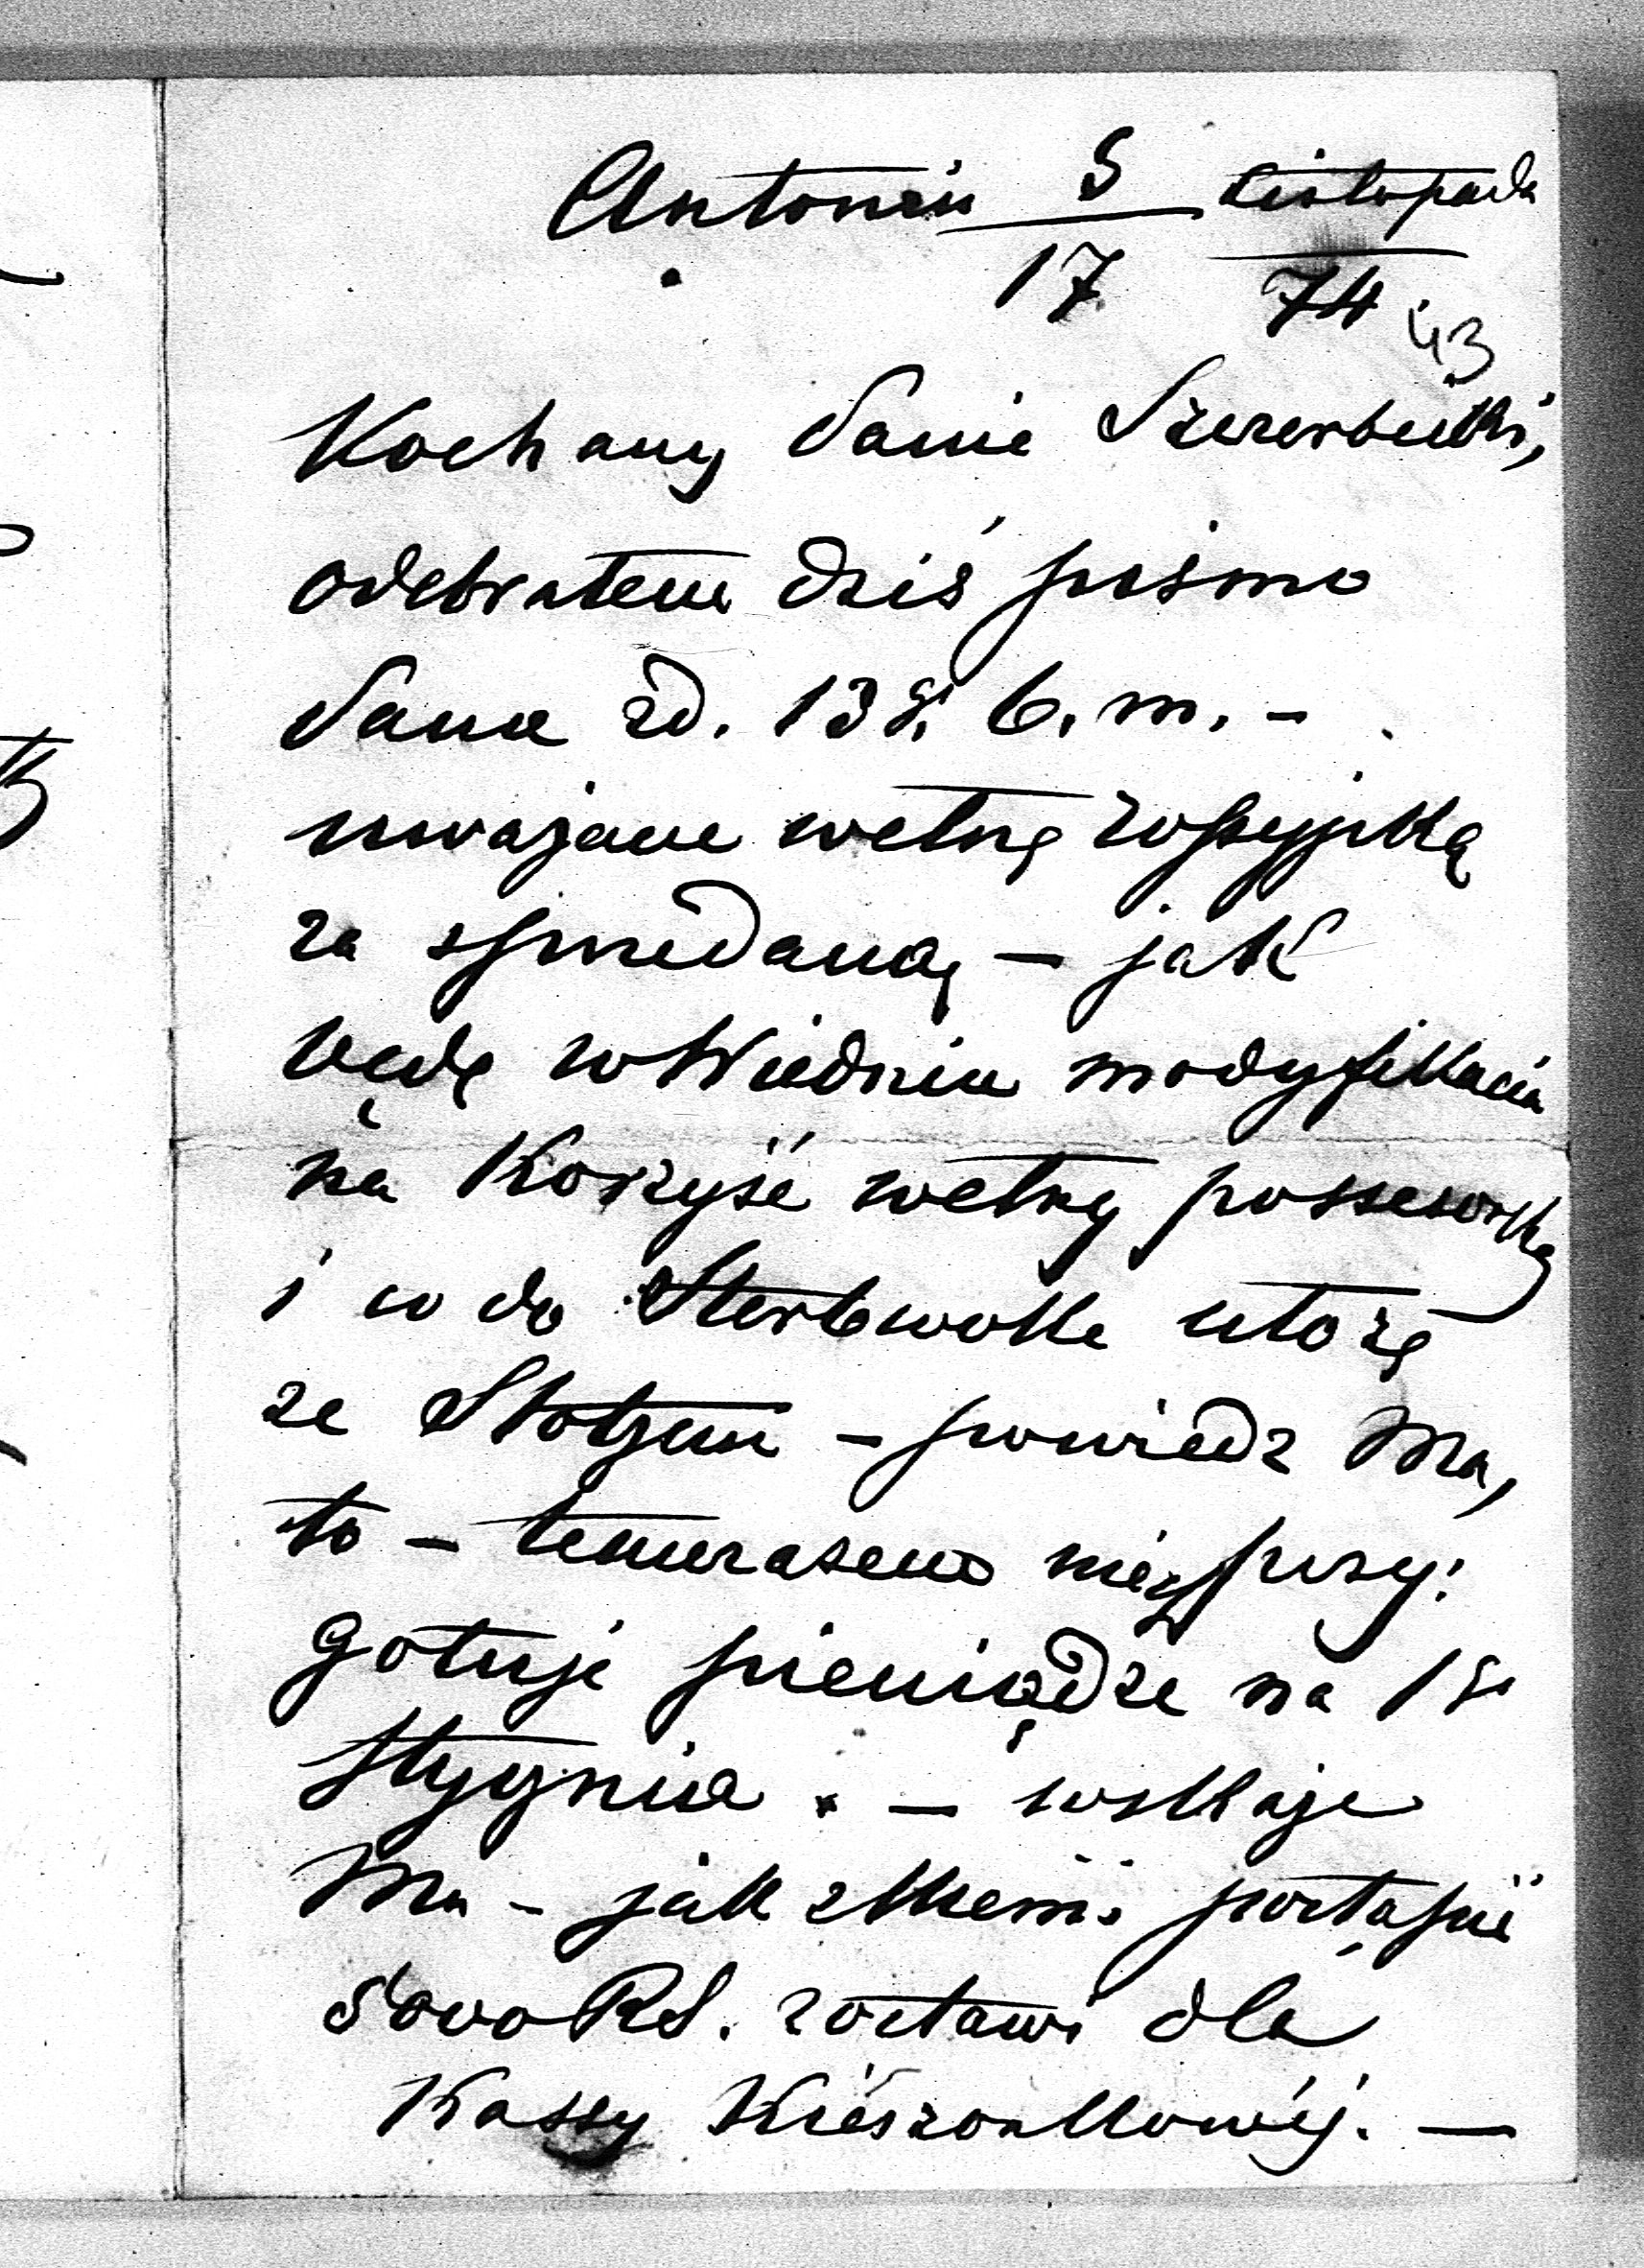 Antonin 5 Listopada
17 74
43
Kochany Panie Szczerbicki,
odebrałem dziś pismo
Pana zd. 13 g. b. m. -
uważam wełnę rossyjską
za sprzedaną - jak
będę w Wiedniu modyfikacia
na korzyść wełny possesorską
i co do Sterbwolle ułożę
ze - powiedz Mu,
to - temczasem niech przy:
gotuje pieniądze na 1 go
stycznia. - wskaże
Mu - jak z Niemi postąpić
5000 RS. zostawi dla
Kassy Kieszonkowéj. -